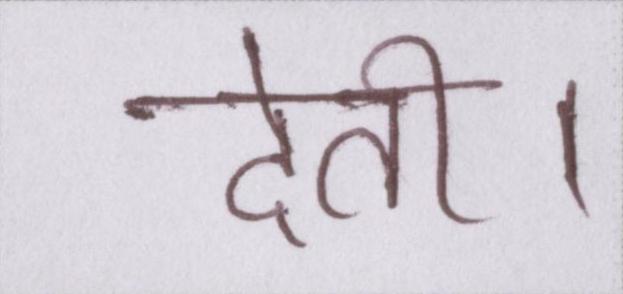 देती।